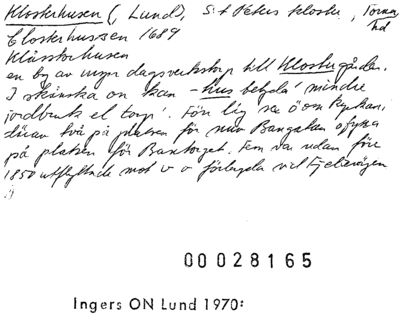 Klosterhusen (, Lund), S:t Peters kloster, Torna hd
Closterhussen 1689
Klåssterhusen
en by av dagsverkstorp till Klostergården.
I skånska on kan -hus betyda 'mindre
jordbruk el torp'. låg öom
därav två på platsen för nuv Bangatan
på platsen för Bantorget. Fem var redan före
1850 utflyttade mot v o förlagda vid Fjelievägen
00028165
Ingers ON Lund 1970: